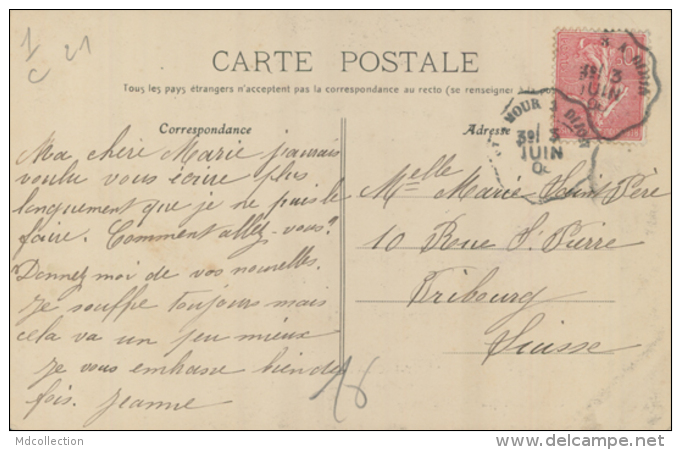 1
C 21
CARTE POSTALE
Tous les pays étrangers n'acceptent pas la correspondance au recto (se renseigner
Correspondance
Ma chère Marie j'aurais
voulu vous écrire plus
longuement que je ne puis le
faire. Comment allez-vous?
Donnez moi de vos nouvelles.
Je souffre toujours mais
cela va un peu mieux
Je vous embrasse bien des
fois. Jeanne
Adresse
Melle Marie Saint Père
10 Rue St Pierre
Fribourg
Suisse
MOUR À DIJON
3º/ 3
JUIN
3º/ 3
JUIN
10
18
Mdcollection
www.delcampe.net